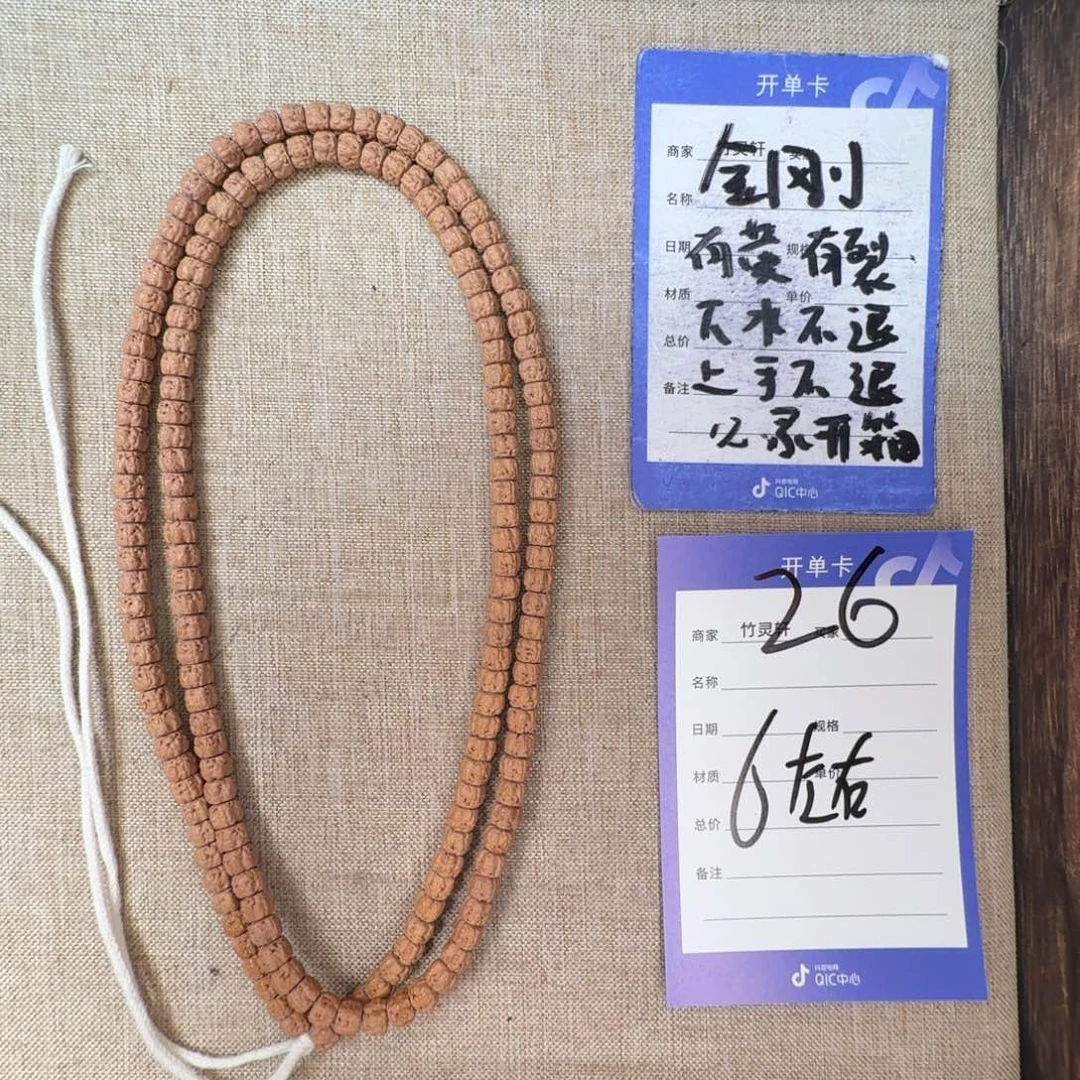 开单卡
商家 竹灵轩 买家
名称 金刚
日期 规格
有荧有裂
材质 单价
下水不退
总价
备注 上手不退
必录开箱
抖音电商
QIC中心
开单卡
26
商家 竹灵轩 买家
名称
日期 规格
材质 单价
6左右
总价
备注
抖音电商
QIC中心